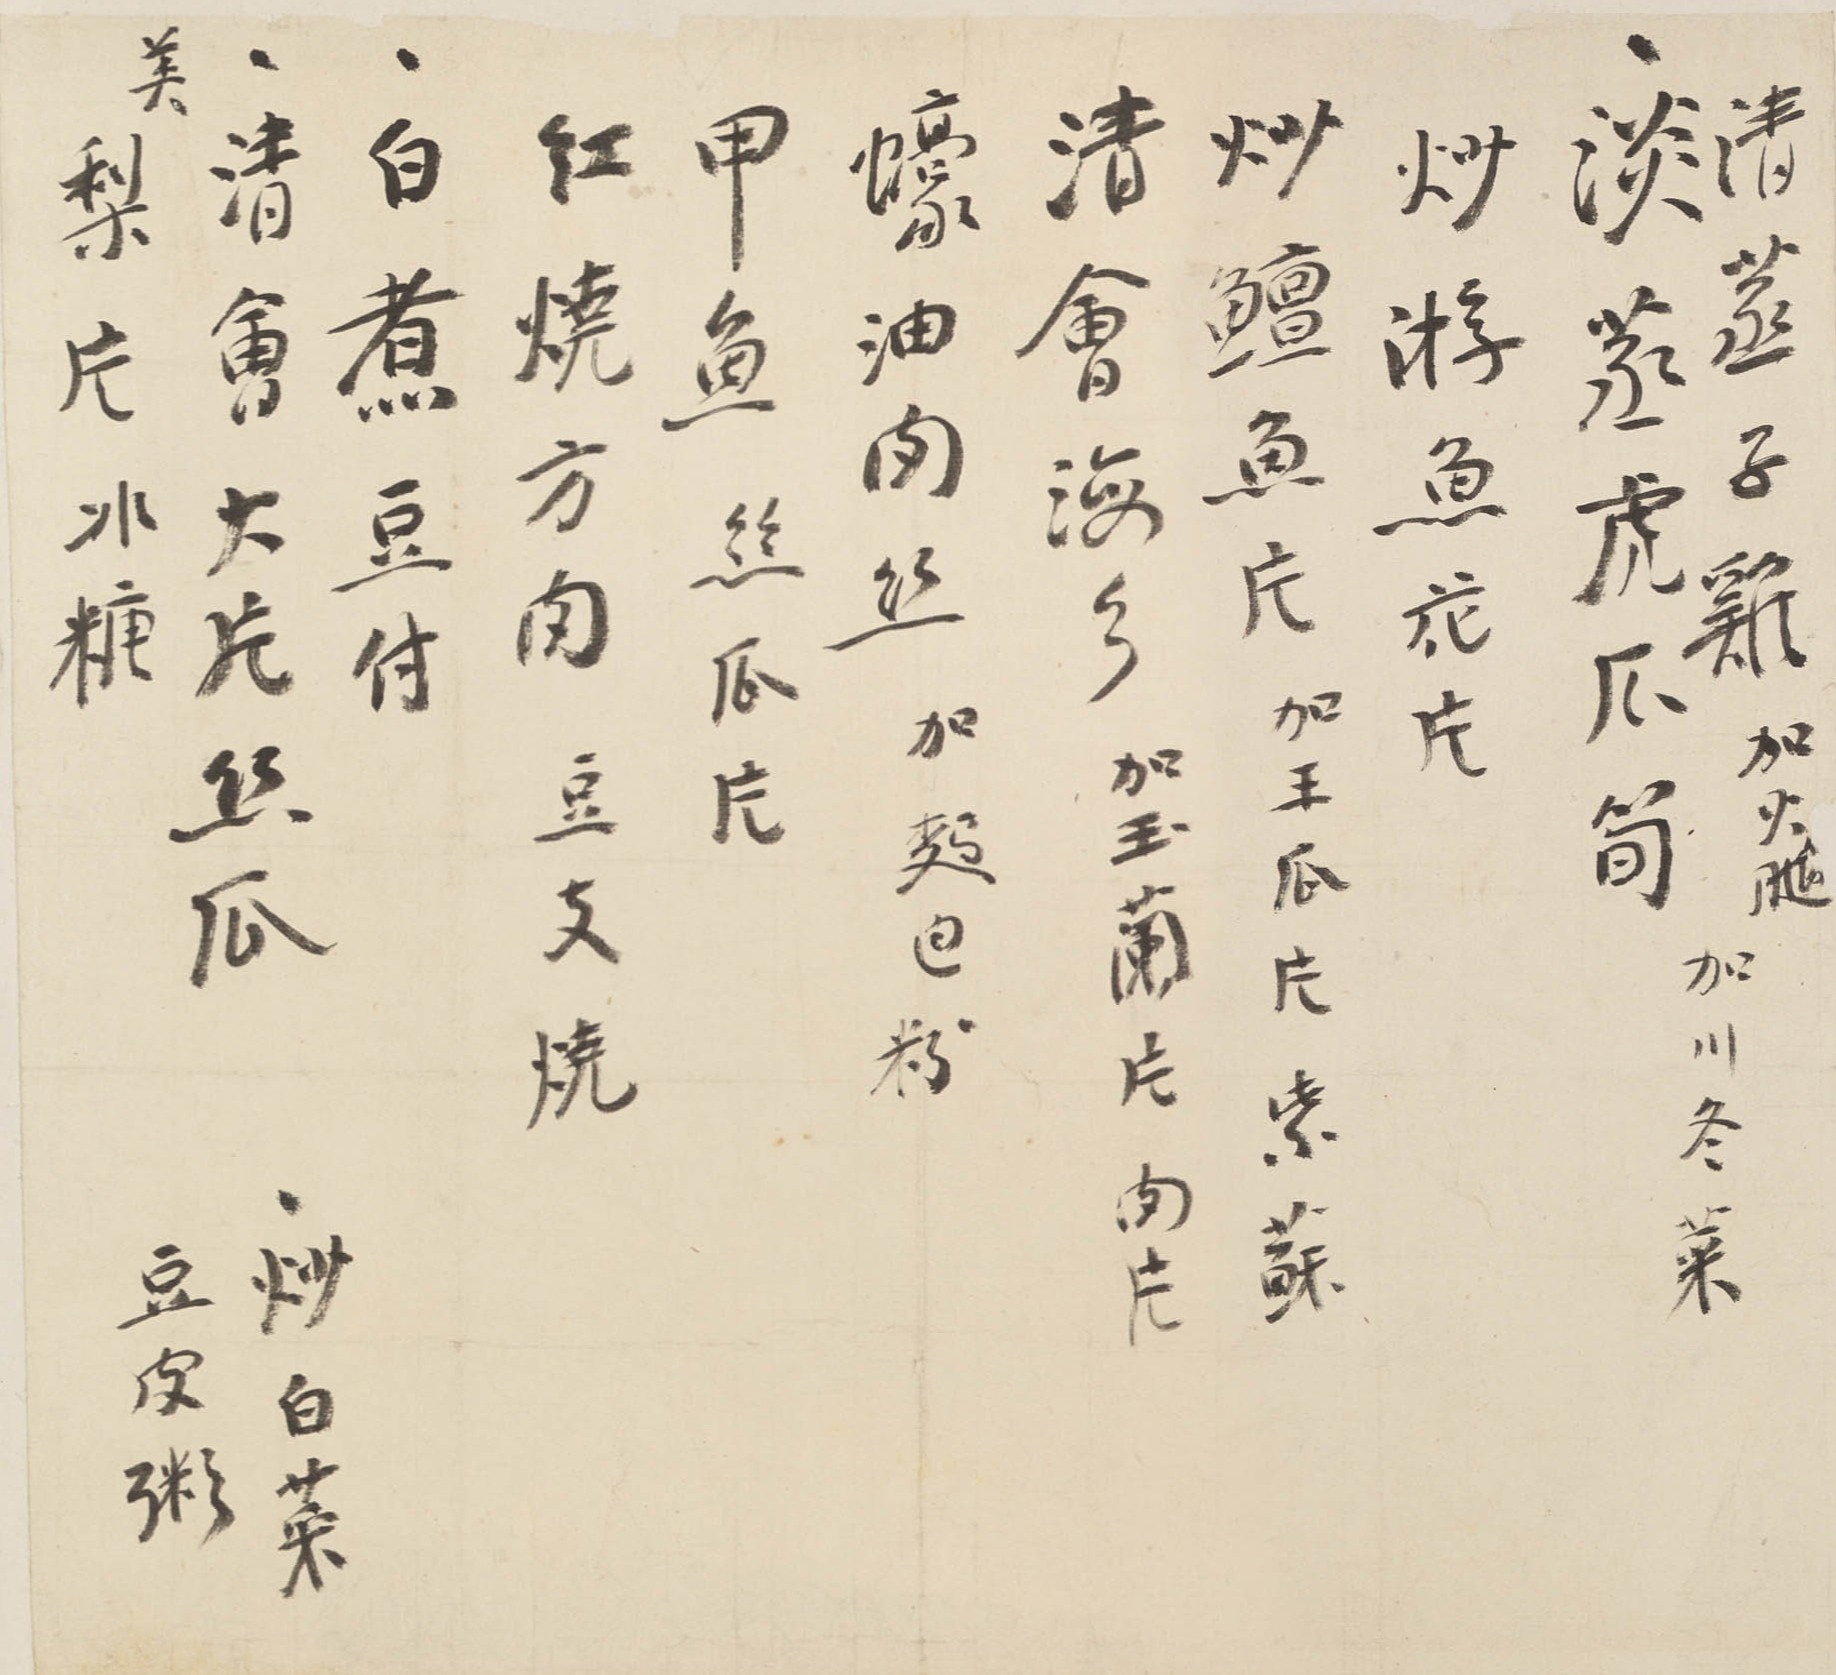 清蒸子雞 加火腿
、淡蒸虎爪筍 加川冬菜
炒游魚花片
炒鱣魚片 加王瓜片 紫蘇
清會海參 加玉蘭片 肉片
蠔油肉丝 加麵包粉
甲魚 丝瓜片
紅燒方肉 豆支燒
、白煮豆付
、清會大片丝瓜
美梨片冰糖
、炒白菜
豆皮粥